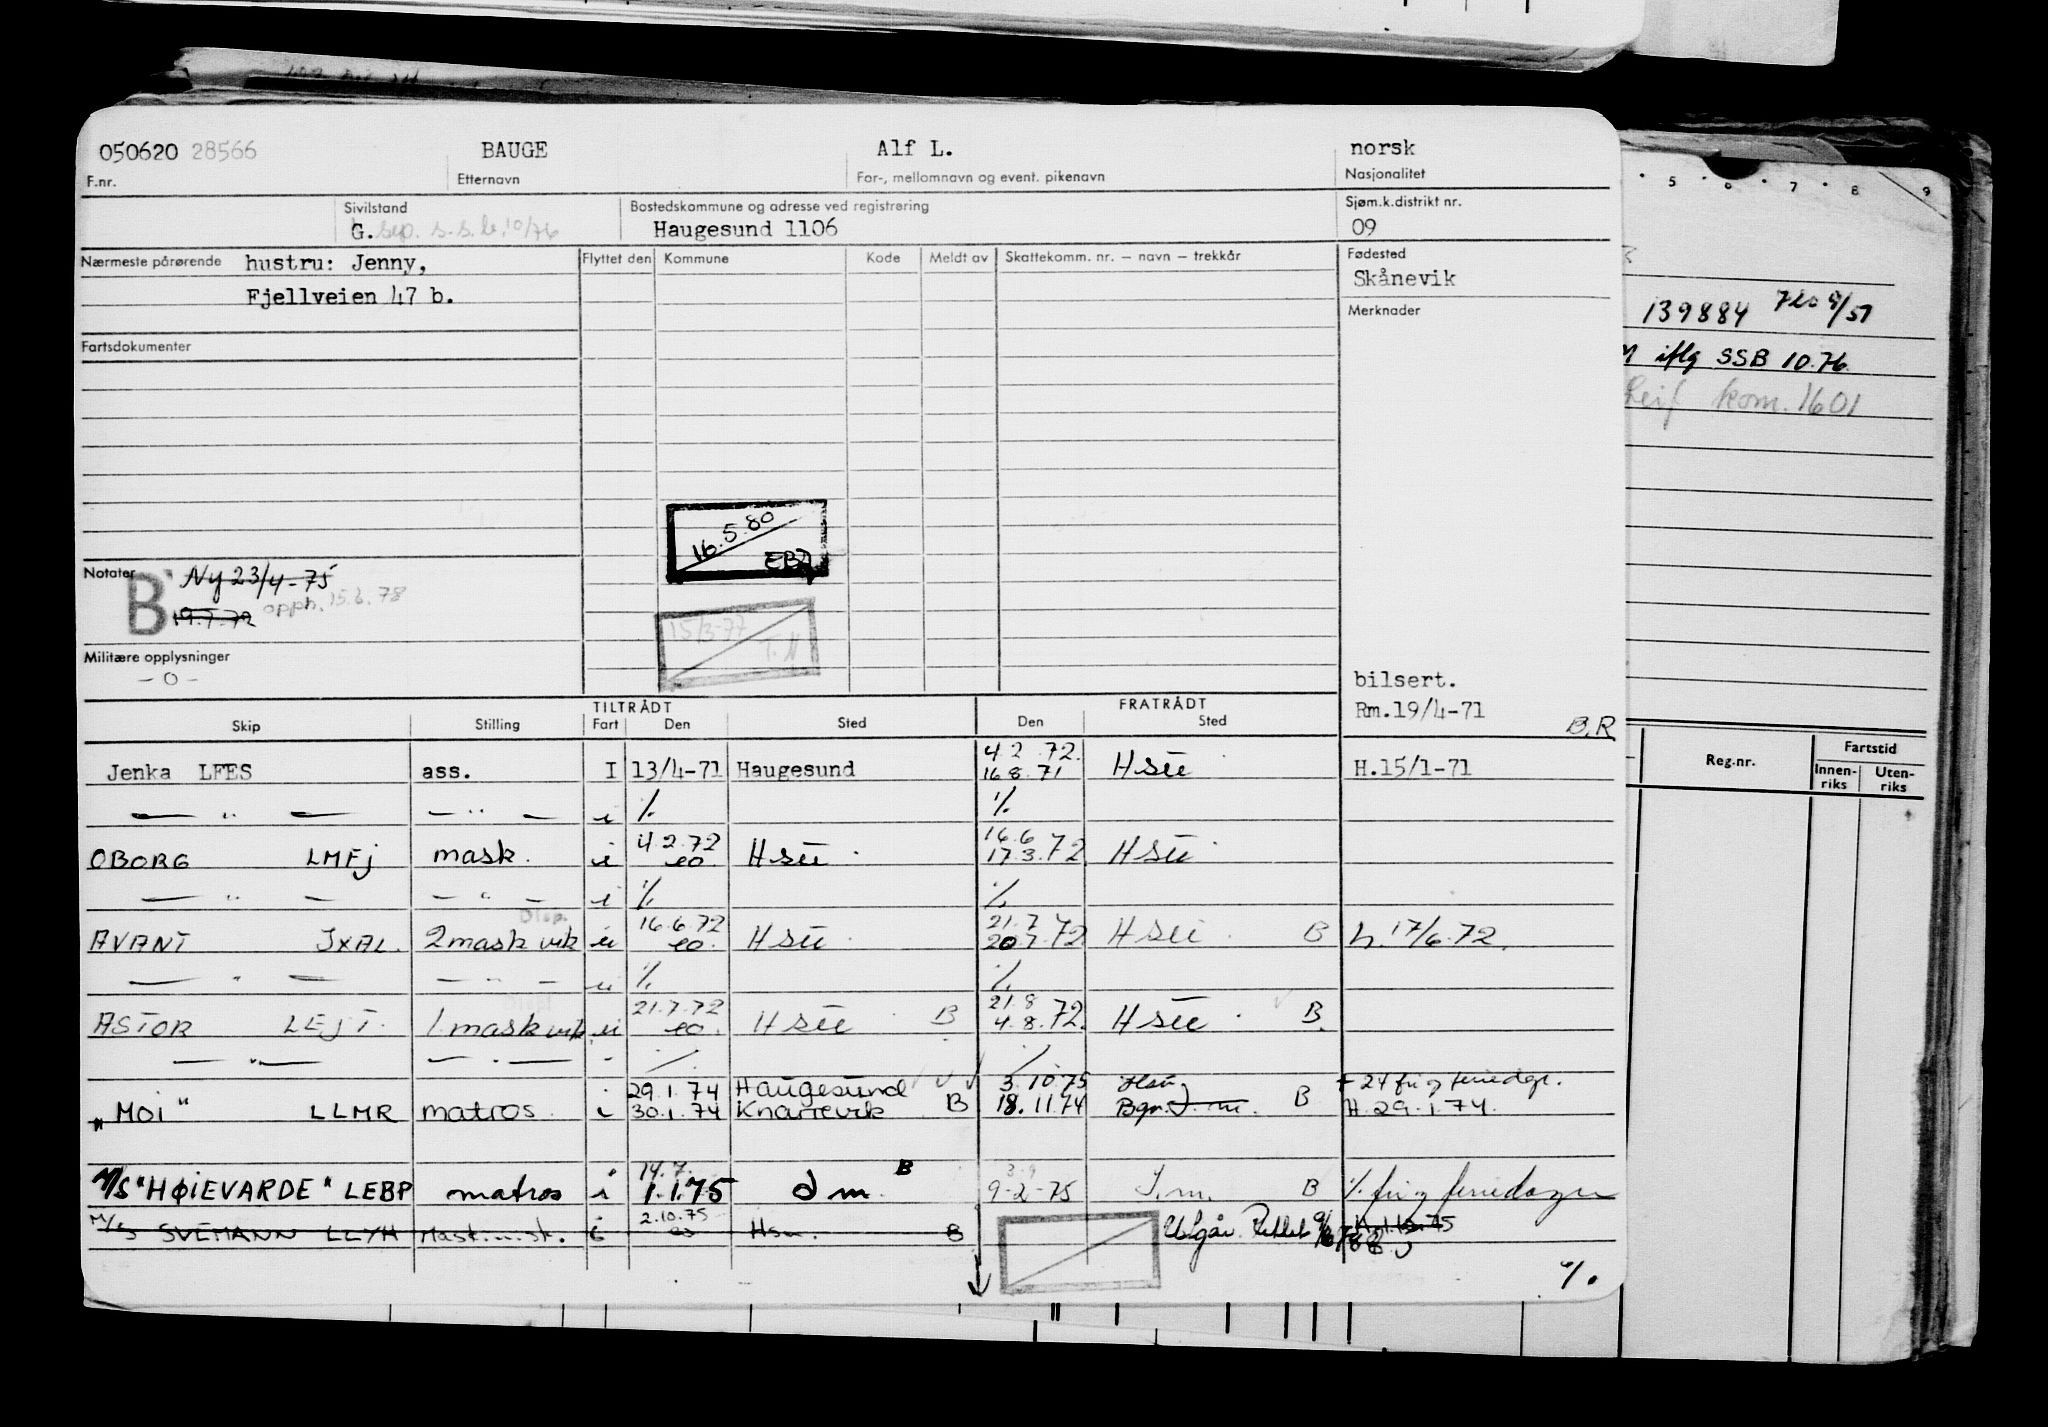 050620 28566 BAUGE Alf L. norsk
F.nr. Etternavn For-, mellomnavn og event. pikenavn Nasjonalitet
Sivilstand Bostedskommune og adresse ved registrering Sjøm.k.distrikt nr.
G. sep. s.s.b. 10/76 Haugesund 1106 09
Nærmeste pårørende hustru: Jenny, Flyttet den Kommune Kode Meldt av Skattekomm. nr. – navn – trekkår Fødested
Skånevik
Fjellveien 47 b.
Merknader
139884
iflg SSB 10.76
Leif kom. 1601
Fartsdokumenter
16.5.80
Notater B Ny 23/4-75
19.7.72 opph. 15.6.78
15/3-77
T.N
Militære opplysninger
- 0 -
bilsert.
Rm.19/4-71
B.R
TILTRÅDT FRATRÅDT
Skip Stilling Fart Den Sted Den Sted
Reg.nr. Fartstid
Innen-riks Uten-riks
4.2.72.
Jenka LFES ass. I 13/4-71 Haugesund 16.8.71 H.15/1-71
— " — — " — i % %
4.2.72 16.6
OBORG LMFj mask. i eo. 17.3.72
— " — — " — i % %
16.6.72 21.7
AVANT JXAL. 2 mask vik u eo. 20.7.72 B h. 17/6.72.
— " — — " — u % %
21.7.72 21.8
ASTOR LEJT. 1. mask vik u eo. B 4.8.72. B.
— " — — " — - % %
29.1.74 Haugesund 3.10.75 + 24 fri og feriedgr.
"MOI" LLMR matros i 30.1.74 Knarrevik B 18.11.74 Bgn. I.m. B H. 29.1.74.
14.7. B 3.9
M/S "HØIEVARDE" LEBP matros i 1.1.75 I m. 9-2-75 I.m. B % fri og feriedager
2.10.75
M/S SVEMANN LLYH i eo Hsu. B
Utgår.
%.